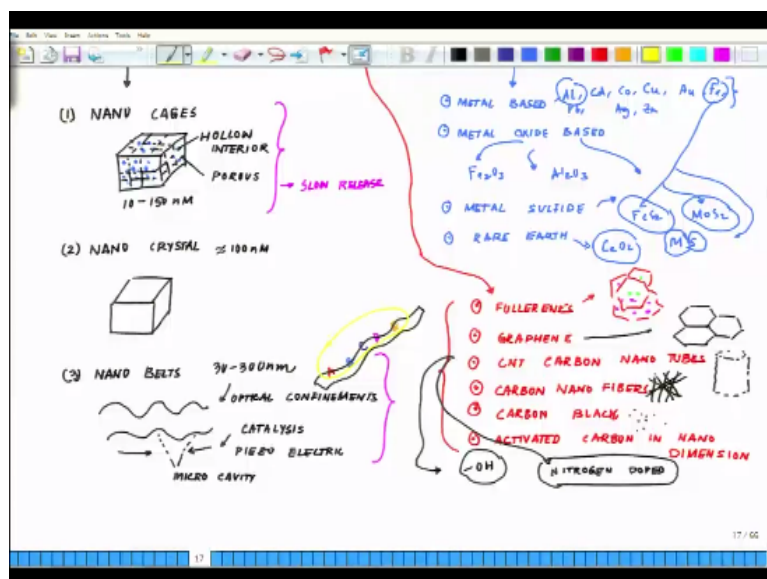 File Edit View Insert Actions Tools Help
(1) NANO CAGES
HOLLOW
INTERIOR
POROUS
10-150 nM
→ SLOW RELEASE
(2) NANO CRYSTAL ≈ 100 nM
(3) NANO BELTS 30-300nm
OPTRAL CONFINEMENTS
CATALYSIS
PIEZO ELECTRIC
MICRO CAVITY
METAL BASED Al, Cd, Co, Cu, Au
Ag, Zn
METAL OXIDE BASED
Fe2O3 Al2O3
METAL SULFIDE → FeS2 MoS2
RARE EARTH → CeO2 MS
FULLERENES
GRAPHENE
CNT CARBON NANO TUBES
CARBON NANO FIBERS
CARBON BLACK
ACTIVATED CARBON IN NANO
DIMENSION
-OH NITROGEN DOPED
17/66
17